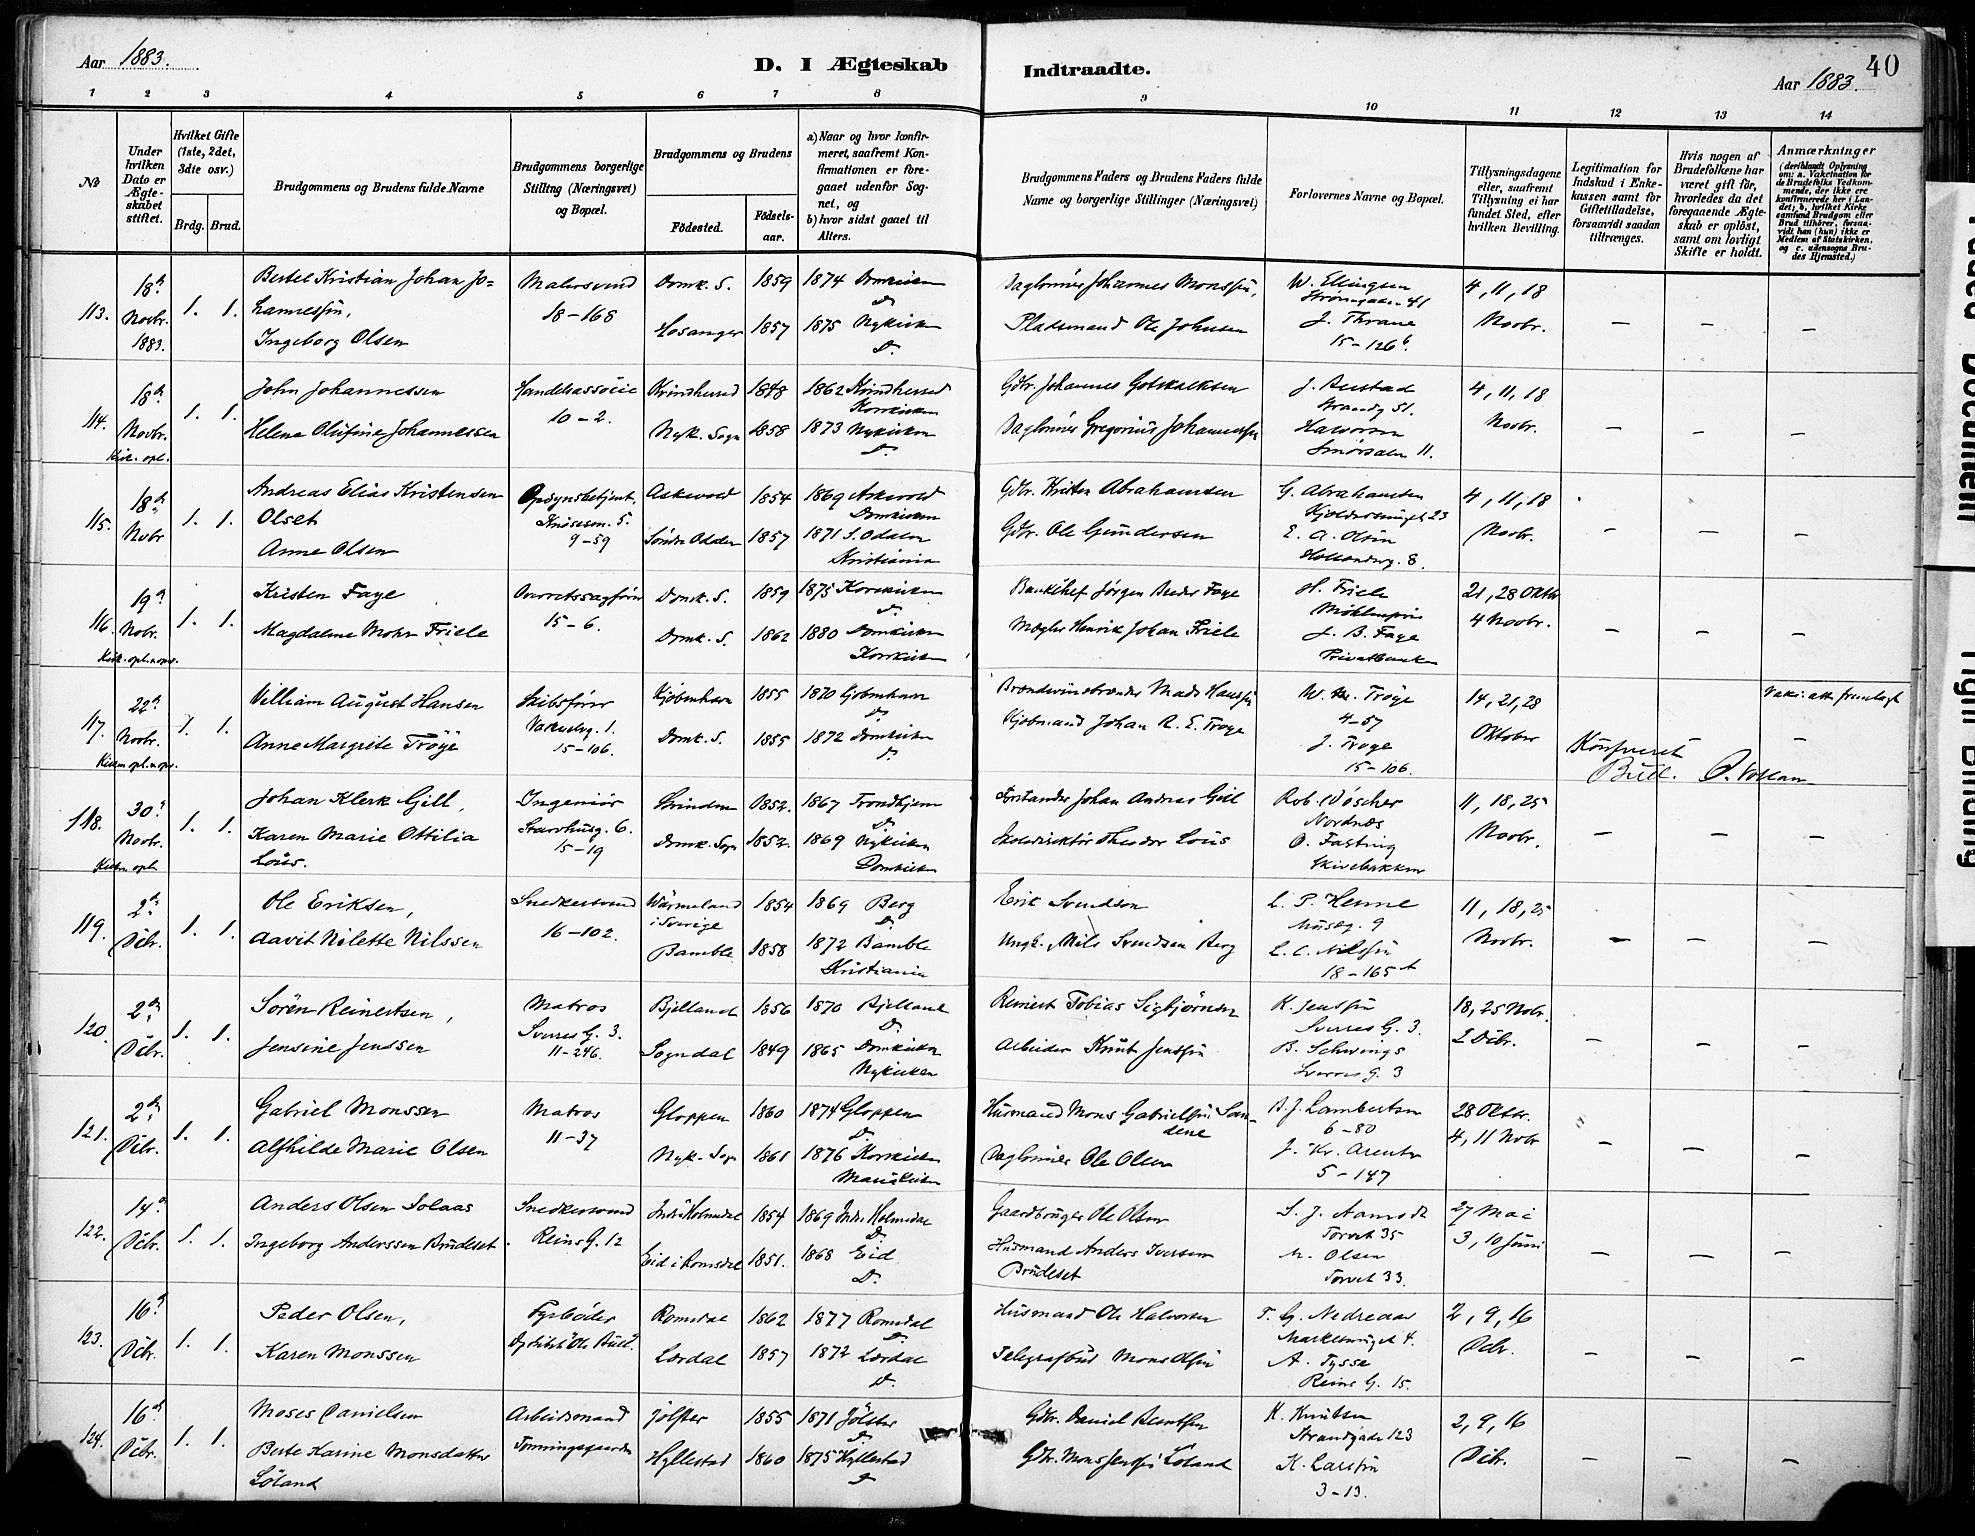 Aar 1883.
D. I Ægteskab
Indtraadte.
Aar 1883.
40
1 2 3 4 5 6 7 8 9 10 11 12 13 14
№
Under hvilken Dato er Ægteskabet stiftet.
Hvilket Gifte (1ste, 2det, 3die osv.)
Brdg. Brud.
Brudgommens og Brudens fulde Navne
Brudgommens borgerlige Stilling (Næringsvei) og Bopæl.
Brudgommens og Brudens
Fødested.
Fødselsaar.
a) Naar og hvor konfirmeret, saafremt Konfirmationen er foregaaet udenfor Sognet, og
b) hvor sidst gaaet til Alters.
Brudgommens Faders og Brudens Faders fulde Navne og borgerlige Stillinger (Næringsvei)
Forlovernes Navne og Bopæl.
Tillysningsdagene eller, saafremt Tillysning ei har fundet Sted, efter hvilken Bevilling.
Legitimation for Indskud i Enkekassen samt for Giftetilladelse, forsaavidt saadan tiltrænges.
Hvis nogen af Brudefolkene har været gift før, hvorledes da det foregaaende Ægteskab er opløst, samt om lovligt Skifte er holdt.
Anmærkninger
(deriblandt Oplysning om: a. Vakcination for de Brudefolks Vedkommende, der ikke ere konfirmerede her i Landet; b. hvilket Kirkesamfund Brudgom eller Brud tilhører, forsaavidt han (hun) ikke er Medlem af Statskirken, og c. udensogns Brudes Hjemsted.)
113. 18de Novbr. 1883. 1. 1.
Bertel Kristian Johan Johannessen,
Ingeborg Olsen
Malersvend
18-168
Domk. S. 1859 1874 Domkirken
D.
Hosanger 1857 1875 Nykirken
D.
Daglønner Johannes Monssen,
Pladsmand Ole Johnsen
W. Ellingsen
Strømgaden 41
J. Thrane
15-126b.
4, 11, 18
Novbr.
114. 18de Novbr. 1. 1.
Kirk. opl.
John Johannessen
Helene Olufine Johannessen
10-2.
1848 1862
Korskirken
Nyk. Sogn 1858 1873 Nykirken
D.
Gdbr. Johannes Gotskalksen
Daglønner Gregorius Johannessen
Strandg 51.
Halvorsen
11.
4, 11, 18
Novbr.
115. 18de Nobr 1. 1.
Andreas Elias Kristensen
Olset
Anne Olsen
Opsynsbetjent,
5.
9-59
Askevold 1854 1869 Askevold
Domkirken
Søndre Odalen 1857 1871 S. Odalen
Kristiania
Gdbr. Kristen Abrahamsen
Gdbr. Ole Gundersen
G. Abrahamsen
23
E. A. Olsen
8.
4, 11, 18
Novbr.
116. 19de Nobr. 1. 1.
Kirk. opl. n opv.
Kristen Faye
Magdalene Mohr Friele
Overretssagfører
15-6.
Domk. S. 1859 1875 Korskirken
D.
Domk. S. 1862 1880 Domkirken
Korskirken
Bankchef Jørgen Breder Faye
Mægler Henrik Johan Friele
H. Friele
J. B. Faye
Privatbanken
21, 28 Oktbr
4 Novbr.
117. 22de Novbr. 1. 1.
William August Hansen
Anne Margrete Trøye
Skibsfører
1.
15-106.
Kjøbenhavn 1855 1870 Kjøbenhavn
D.
Domk. S. 1855 1872 Domkirken
D.
Brændevinsbrænder Mads Hanssen
Kjøbmand Johan R. E. Troye
Trøye
4-57
J. Troye
15-106.
14, 21, 28
Oktober
Vakc. att. fremlagt
Konfereret
118. 30te Novbr. 1. 1.
Johan Klerk Gill,
Karen Marie Ottilia
Lous.
Ingeniør
6.
15-19
Strinden 1852. 1867 Trondhjem
D.
Domk. Sogn 1852. 1869 Nykirken
Domkirken
Forstander Johan Andreas Gill
Skoledirektør Theodor Lous
Rob. Döscher
Nordnæs
O. Fasting
Skivebakken
11, 18, 25
Novbr.
119. 2den Dcbr. 1. 1.
Ole Eriksen,
Aavit Nolette Nilssen
Snedkersvend
16-102.
Wärmeland
i Sverige 1854 1869 Berg
D.
Bamble 1858 1872 Bamble
Kristiania
Erik Svendson
Ungk. Nils Svendsen Berg
L. P. Henne
Museg. 9
L. C. Nilssen
18-165 A
11, 18, 25
Novbr.
120. 2den Dcbr. 1. 1.
Sören Reinertsen,
Jensine Jenssen
Matros
Sverres G. 3.
11-246.
Bjelland 1856 1870 Bjelland
D.
Sogndal 1849 1865 Domkirken
Nykirken
Reinert Tobias Sigbjørnsen
Arbeider Knut Jenssen
K. Jenssen
Sverres G. 3.
B. Schwings
Sverres G. 3
18, 25 Nobr.
2 Dcbr.
121. 2den Dcbr. 1. 1.
Gabriel Monssen
Alfhilde Marie Olsen
Matros
11-37
Gloppen 1860 1874 Gloppen
D.
Nyk. Sogn 1861 1876 Korskirken
Mariakirken
Husmand Mons Gabrielsen Sandene
Daglønner Ole Olsen
A. J. Lambertsen
6-80
J. Kr. Arentz
5-147
28 Oktbr.
4, 11 Nobr
122. 14de Dcbr. 1. 1.
Anders Olsen Solaas
Ingeborg Anderssen Brudeset
Snedkersvend
Reins G. 12
Indre Holmedal 1854 1869 Indre Holmedal
D.
Eid i Romsdal 1851. 1868 Eid
D.
Gaardbruger Ole Olsen
Husmand Anders Iversen
Brudeset
S. J. Aamodt
Torvet 35
M. Olsen
Torvet 33.
27 Mai
3, 10 Juni
123. 16de Dcbr. 1. 1.
Peder Olsen,
Karen Monssen
Fyrbøder
Dpskibet "Ole Bull"
Romsdal 1862 1877 Romsdal
D.
Lærdal 1857 1872 Lærdal
D.
Husmand Ole Halvorsen
Telegrafbud Mons Olsen
T. G. Nedreaas
4.
A. Tysse
Reins G. 15.
2, 9, 16
Dcbr.
124. 16de Dcbr. 1. 1.
Moses Danielsen
Berte Karine Monsdatter
Løland
Arbeidsmand
Jølster 1855 1871 Jølster
D.
Hyllestad 1860 1875 Hyllestad
D.
Gdbr. Daniel Berntsen
Gdbr. Mons Jenssen Løland
K. Knutsen
Strandgade 123
K. Larssen
3-13.
2, 9, 16
Dcbr.